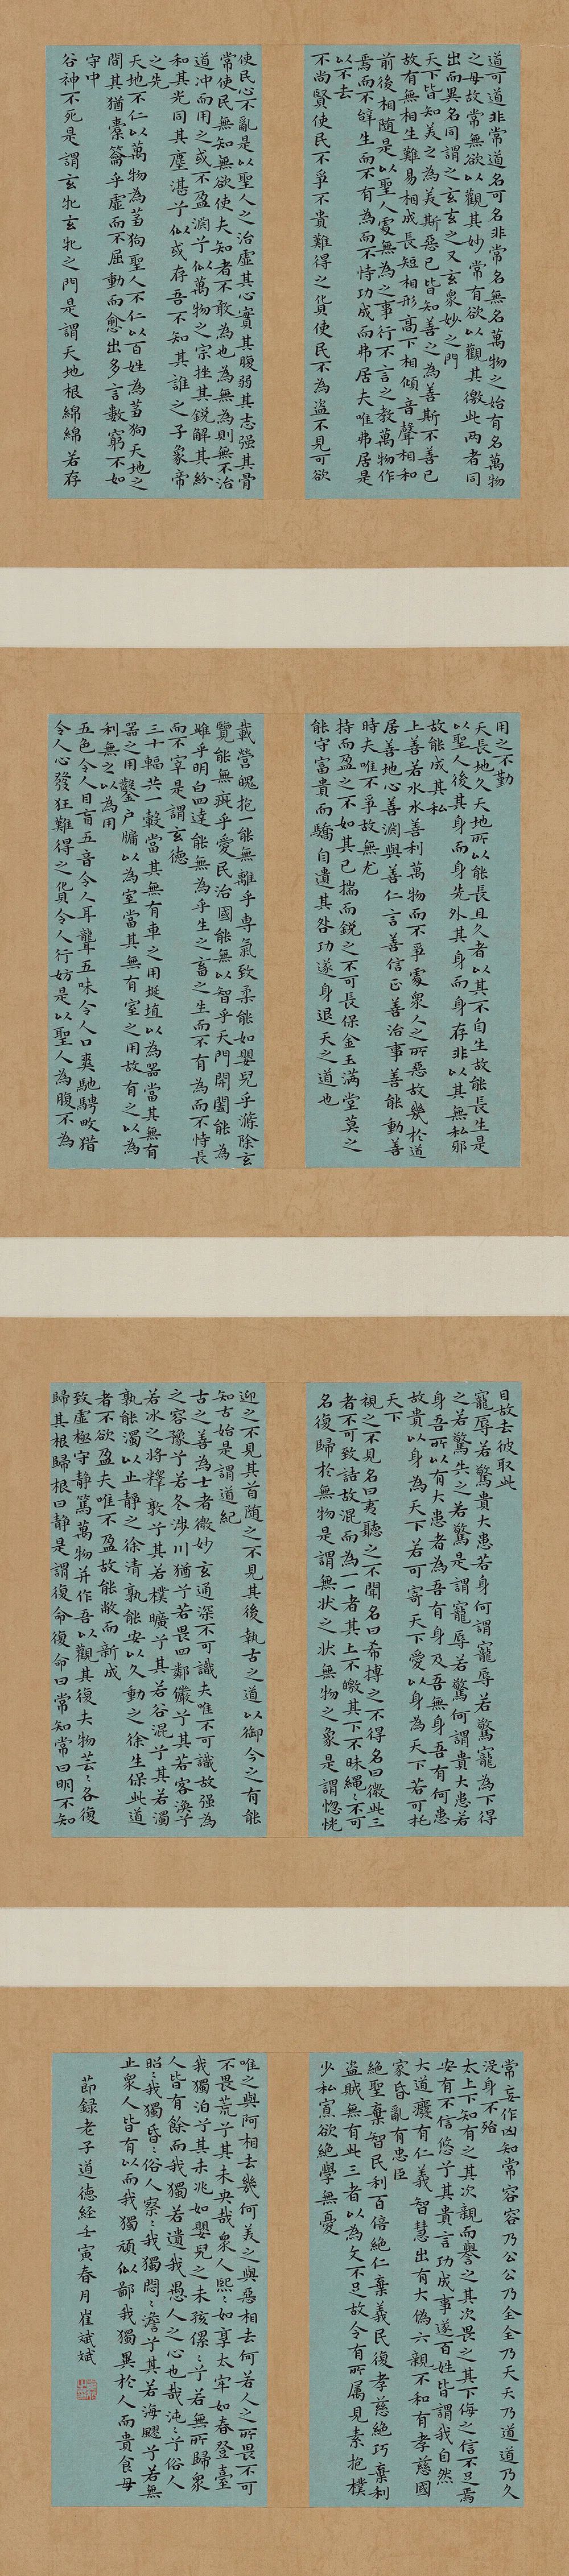 道可道非常道名可名非常名無名萬物之始有名萬物
之母故常無欲以觀其妙常有欲以觀其徼此兩者同
出而異名同謂之玄玄之又玄衆妙之門
天下皆知美之為美斯惡已皆知善之為善斯不善已
故有無相生難易相成長短相形高下相傾音聲相和
前後相隨是以聖人處無為之事行不言之教萬物作
焉而不辭生而不有為而不恃功成而弗居夫唯弗居是
以不去
不尚賢使民不爭不貴難得之貨使民不為盜不見可欲
使民心不亂是以聖人之治虛其心實其腹弱其志强其骨
常使民無知無欲使夫知者不敢為也為無為則無不治
道冲而用之或不盈淵兮似萬物之宗挫其鋭解其紛
和其光同其塵湛兮似或存吾不知其誰之子象帝
之先
天地不仁以萬物為芻狗聖人不仁以百姓為芻狗天地之
間其猶橐籥乎虛而不屈動而愈出多言數窮不如
守中
谷神不死是謂玄牝玄牝之門是謂天地根綿綿若存
用之不勤
天長地久天地所以能長且久者以其不自生故能長生是
以聖人後其身而身先外其身而身存非以其無私邪
故能成其私
上善若水水善利萬物而不爭處衆人之所惡故幾於道
居善地心善淵與善仁言善信正善治事善能動善
時夫唯不爭故無尤
持而盈之不如其已揣而鋭之不可長保金玉满堂莫之
能守富貴而驕自遺其咎功遂身退天之道也
載營魄抱一能無離乎専氣致柔能如嬰兒乎滌除玄
覽能無疵乎愛民治國能無以智乎天門開闔能為
雌乎明白四達能無為乎生之畜之生而不有為而不恃長
而不宰是謂玄德
三十輻共一轂當其無有車之用埏埴以為器當其無有
器之用鑿户牖以為室當其無有室之用故有之以為
利無之以為用
五色令人目盲五音令人耳聾五味令人口爽馳騁畋猎
令人心發狂難得之貨令人行妨是以聖人為腹不為
目故去彼取此
寵辱若驚貴大患若身何謂寵辱若驚寵為下得
之若驚失之若驚是謂寵辱若驚何謂貴大患若
身吾所以有大患者為吾有身及吾無身吾有何患
故貴以身為天下若可寄天下愛以身為天下若可托
天下
視之不見名曰夷聽之不聞名曰希搏之不得名曰微此三
者不可致詰故混而為一一者其上不皦其下不昧繩〻不可
名復歸於無物是謂無状之状無物之象是謂惚恍
迎之不見其首随之不見其後執古之道以御今之有能
知古始是謂道紀
古之善為士者微妙玄通深不可識夫唯不可識故强為
之容豫兮若冬涉川猶兮若畏四鄰儼兮其若容渙兮
若冰之将釋敦兮其若樸曠兮其若谷混兮其若濁
孰能濁以止静之徐清孰能安以久動之徐生保此道
者不欲盈夫唯不盈故能敝而新成
致虛極守静篤萬物并作吾以觀其復夫物芸〻各復
歸其根歸根曰静是謂復命復命曰常知常曰明不知
常妄作凶知常容容乃公公乃全全乃天天乃道道乃久
没身不殆
太上下知有之其次親而譽之其次畏之其下侮之信不足焉
安有不信悠兮其貴言功成事遂百姓皆謂我自然
大道癈有仁義智慧出有大偽六親不和有孝慈國
家昏亂有忠臣
絶聖棄智民利百倍絶仁棄義民復孝慈絶巧棄利
盜賊無有此三者以為文不足故令有所属見素抱樸
少私寡欲絶學無憂
唯之與阿相去幾何美之與惡相去何若人之所畏不可
不畏荒兮其未央哉衆人熙〻如享太牢如春登臺
我獨泊兮其未兆如嬰兒之未孩傫〻兮若無所歸衆
人皆有餘而我獨若遺我愚人之心也哉沌〻兮俗人
昭〻我獨昏〻俗人察〻我獨悶〻澹兮其若海飂兮若無
止衆人皆有以而我獨頑似鄙我獨異於人而貴食母
節録老子道德経壬寅春月崔斌斌